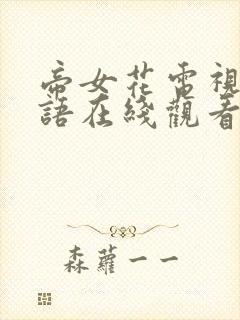 帝女花電視
語在綫觀看
森蘿一一